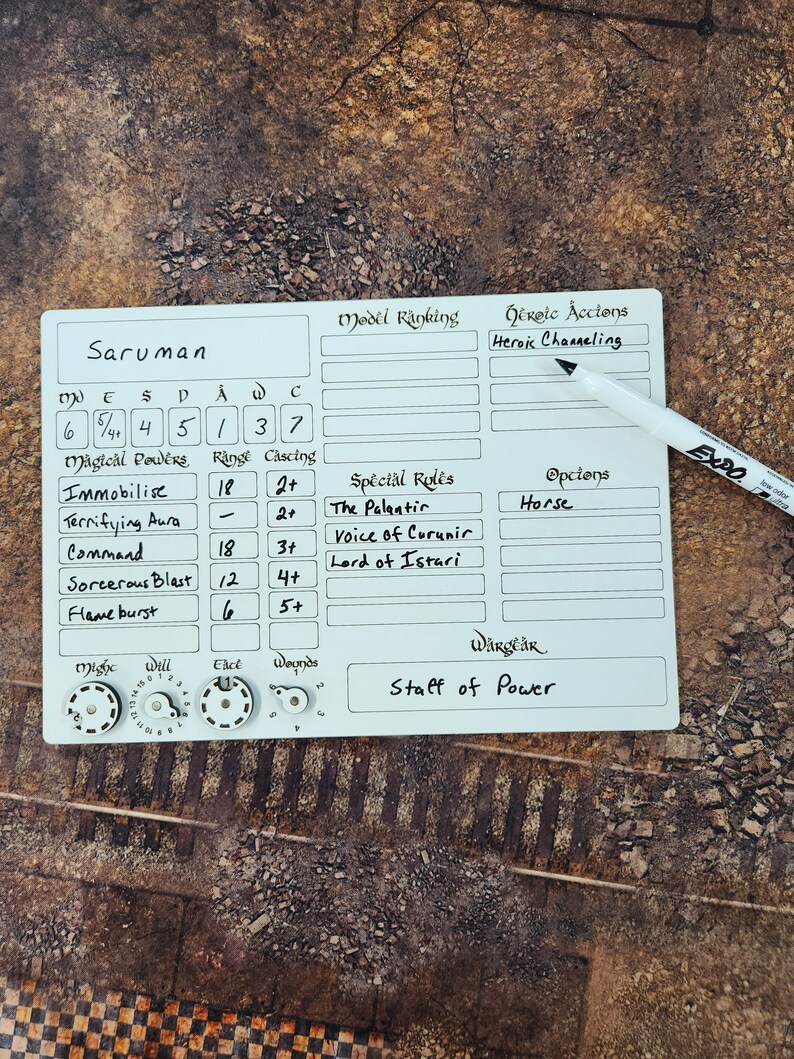 Saruman
Mv F S D A W C
6 5/4+ 4 5 1 3 7
Magical Powers Range Casting
Immobilise 18 2+
Terrifying Aura – 2+
Command 18 3+
Sorcerous Blast 12 4+
Flameburst 6 5+
Might Will Fate Wounds
0 1 2 3 4 5 6 7 8 9 10 11 12 13 14 15
1
1 2 3 4 5 6
Model Ranking
Heroic Actions
Heroic Channeling
Special Rules
The Palantir
Voice of Curunir
Lord of Istari
Options
Horse
Wargear
Staff of Power
EXPO
low odor
ultra